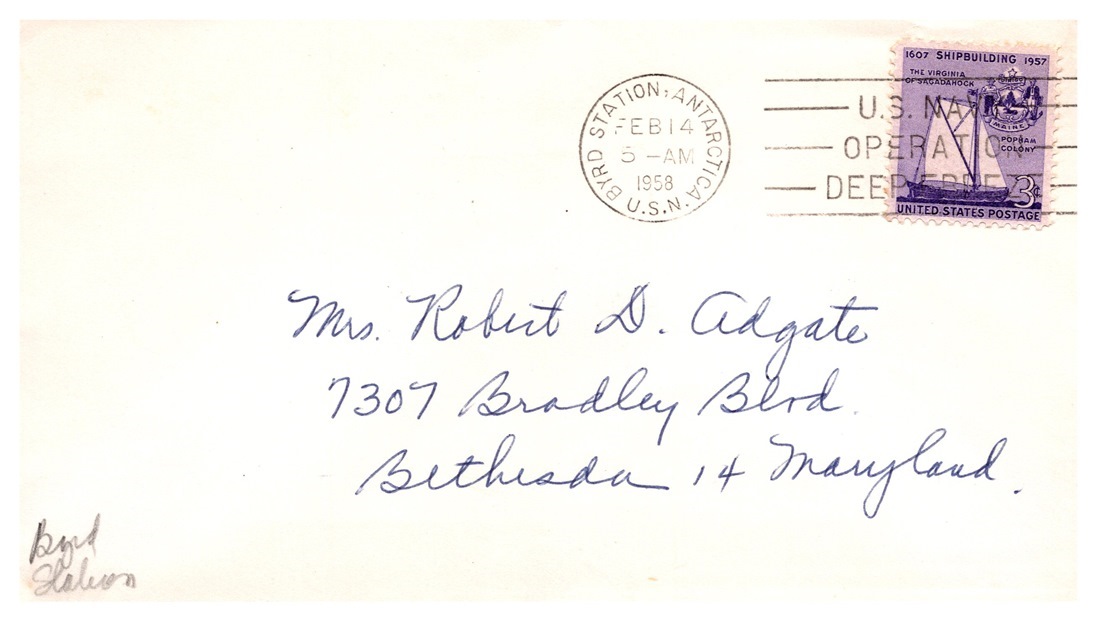 BYRD STATION, ANTARCTICA.
FEB 14
5 -AM
1958
U.S.N.
U.S. NAVY
OPERATION
DEEP FREEZE
1607 SHIPBUILDING 1957
THE VIRGINIA
OF SAGADAHOCK
MAINE
POPHAM
COLONY
3¢
UNITED STATES POSTAGE
Mrs. Robert D. Adgate
7307 Bradley Blvd.
Bethesda 14 Maryland.
Byrd
Station